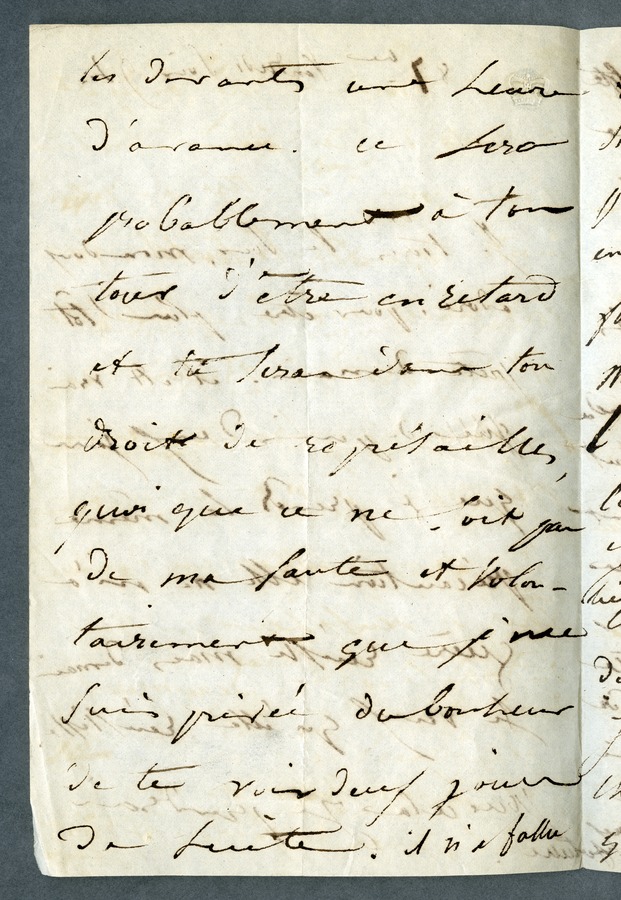 les devants une heure
d'avance. ce sera
probablement à ton
tour d'être en retard
et tu seras dans ton
droit de représailles,
quoi que ce ne soit pas
de ma faute et volon-
tairement que je me
suis privée du bonheur
de te voir deux jours
de suite. il m'a fallu